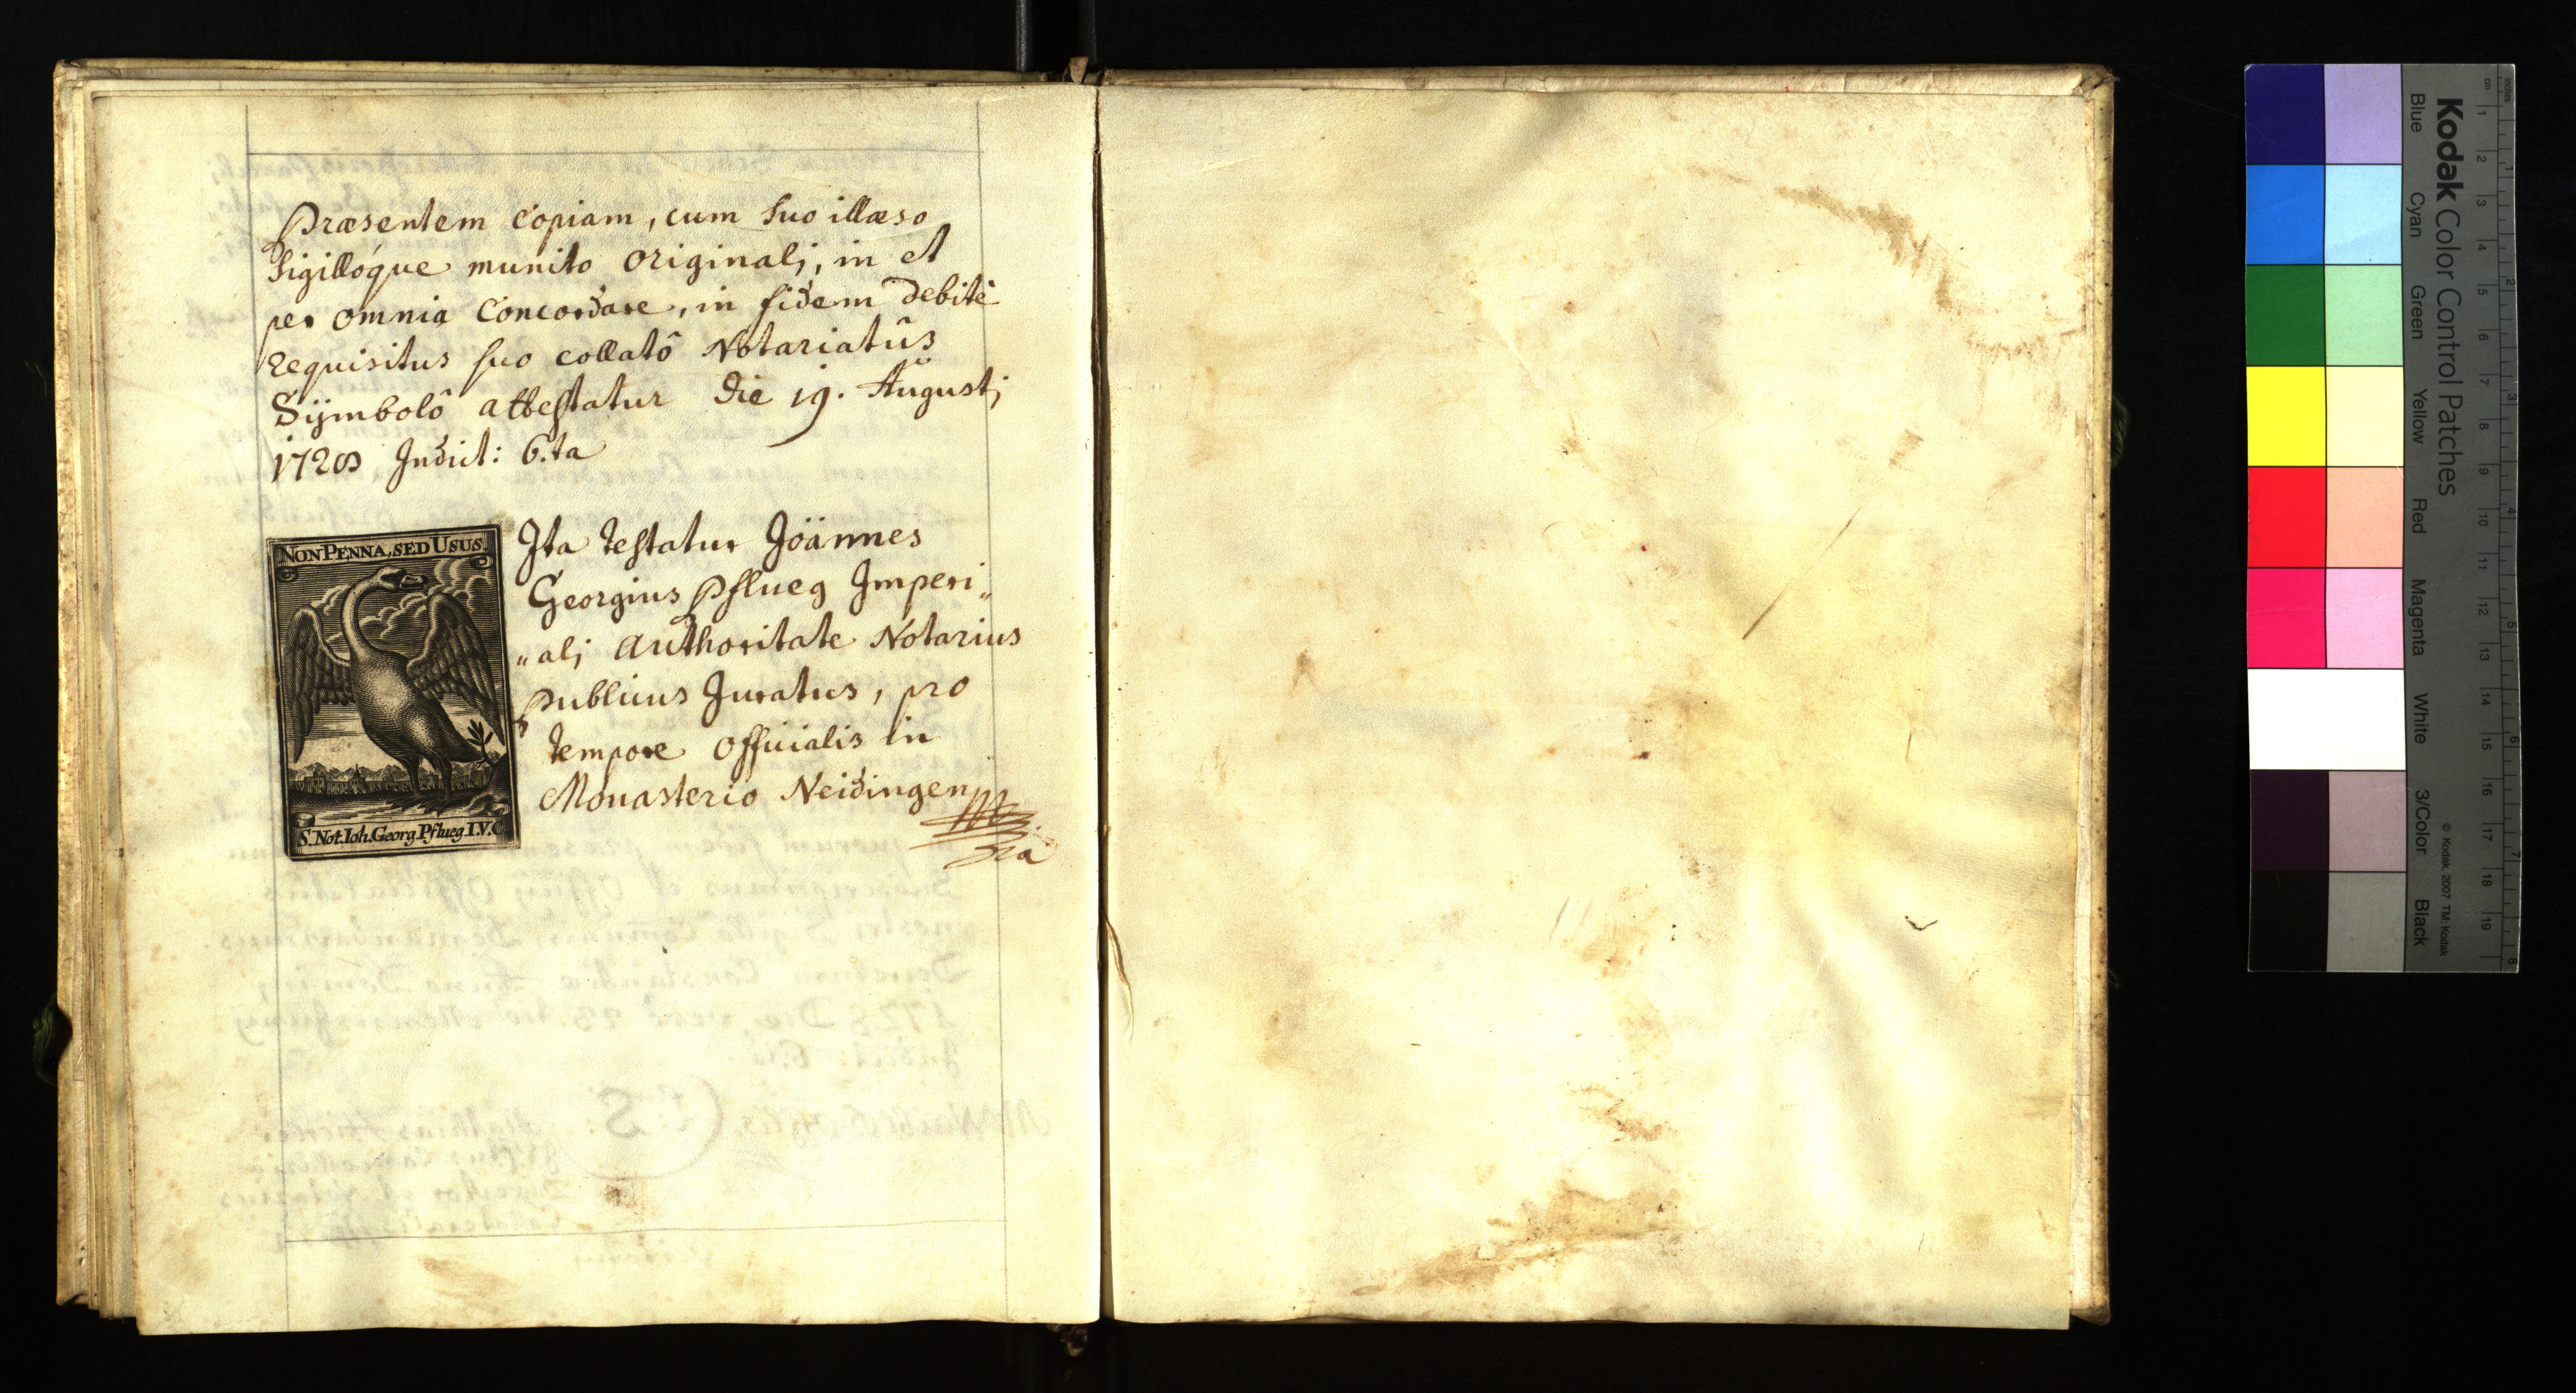 Præsentem Copiam, cum suo illæso
Sigillóque munito originalj, in et
per omnia Concordare, in fidem debitè
requisitus suo collatô Notariatûs
Sÿmbolô attestatur die 19. Augustj
1728 Indict: 6.ta
NON PENNA, SED USUS.
S. Not. Ioh. Georg Pflueg I.V.C.
Ita testatur Joännes
Georgius Pflueg Imperi„
„alj Authoritate Notarius
Publicus Juratus, pro
tempore Officialis in
Monasterio Neidingen
Kodak Color Control Patches
© Kodak, 2007 TM: Kodak
Blue Cyan Green Yellow Red Magenta White 3/Color Black
cm 1 2 3 4 5 6 7 8 9 10 11 12 13 14 15 16 17 18 19
inches 1 2 3 4 5 6 7 8